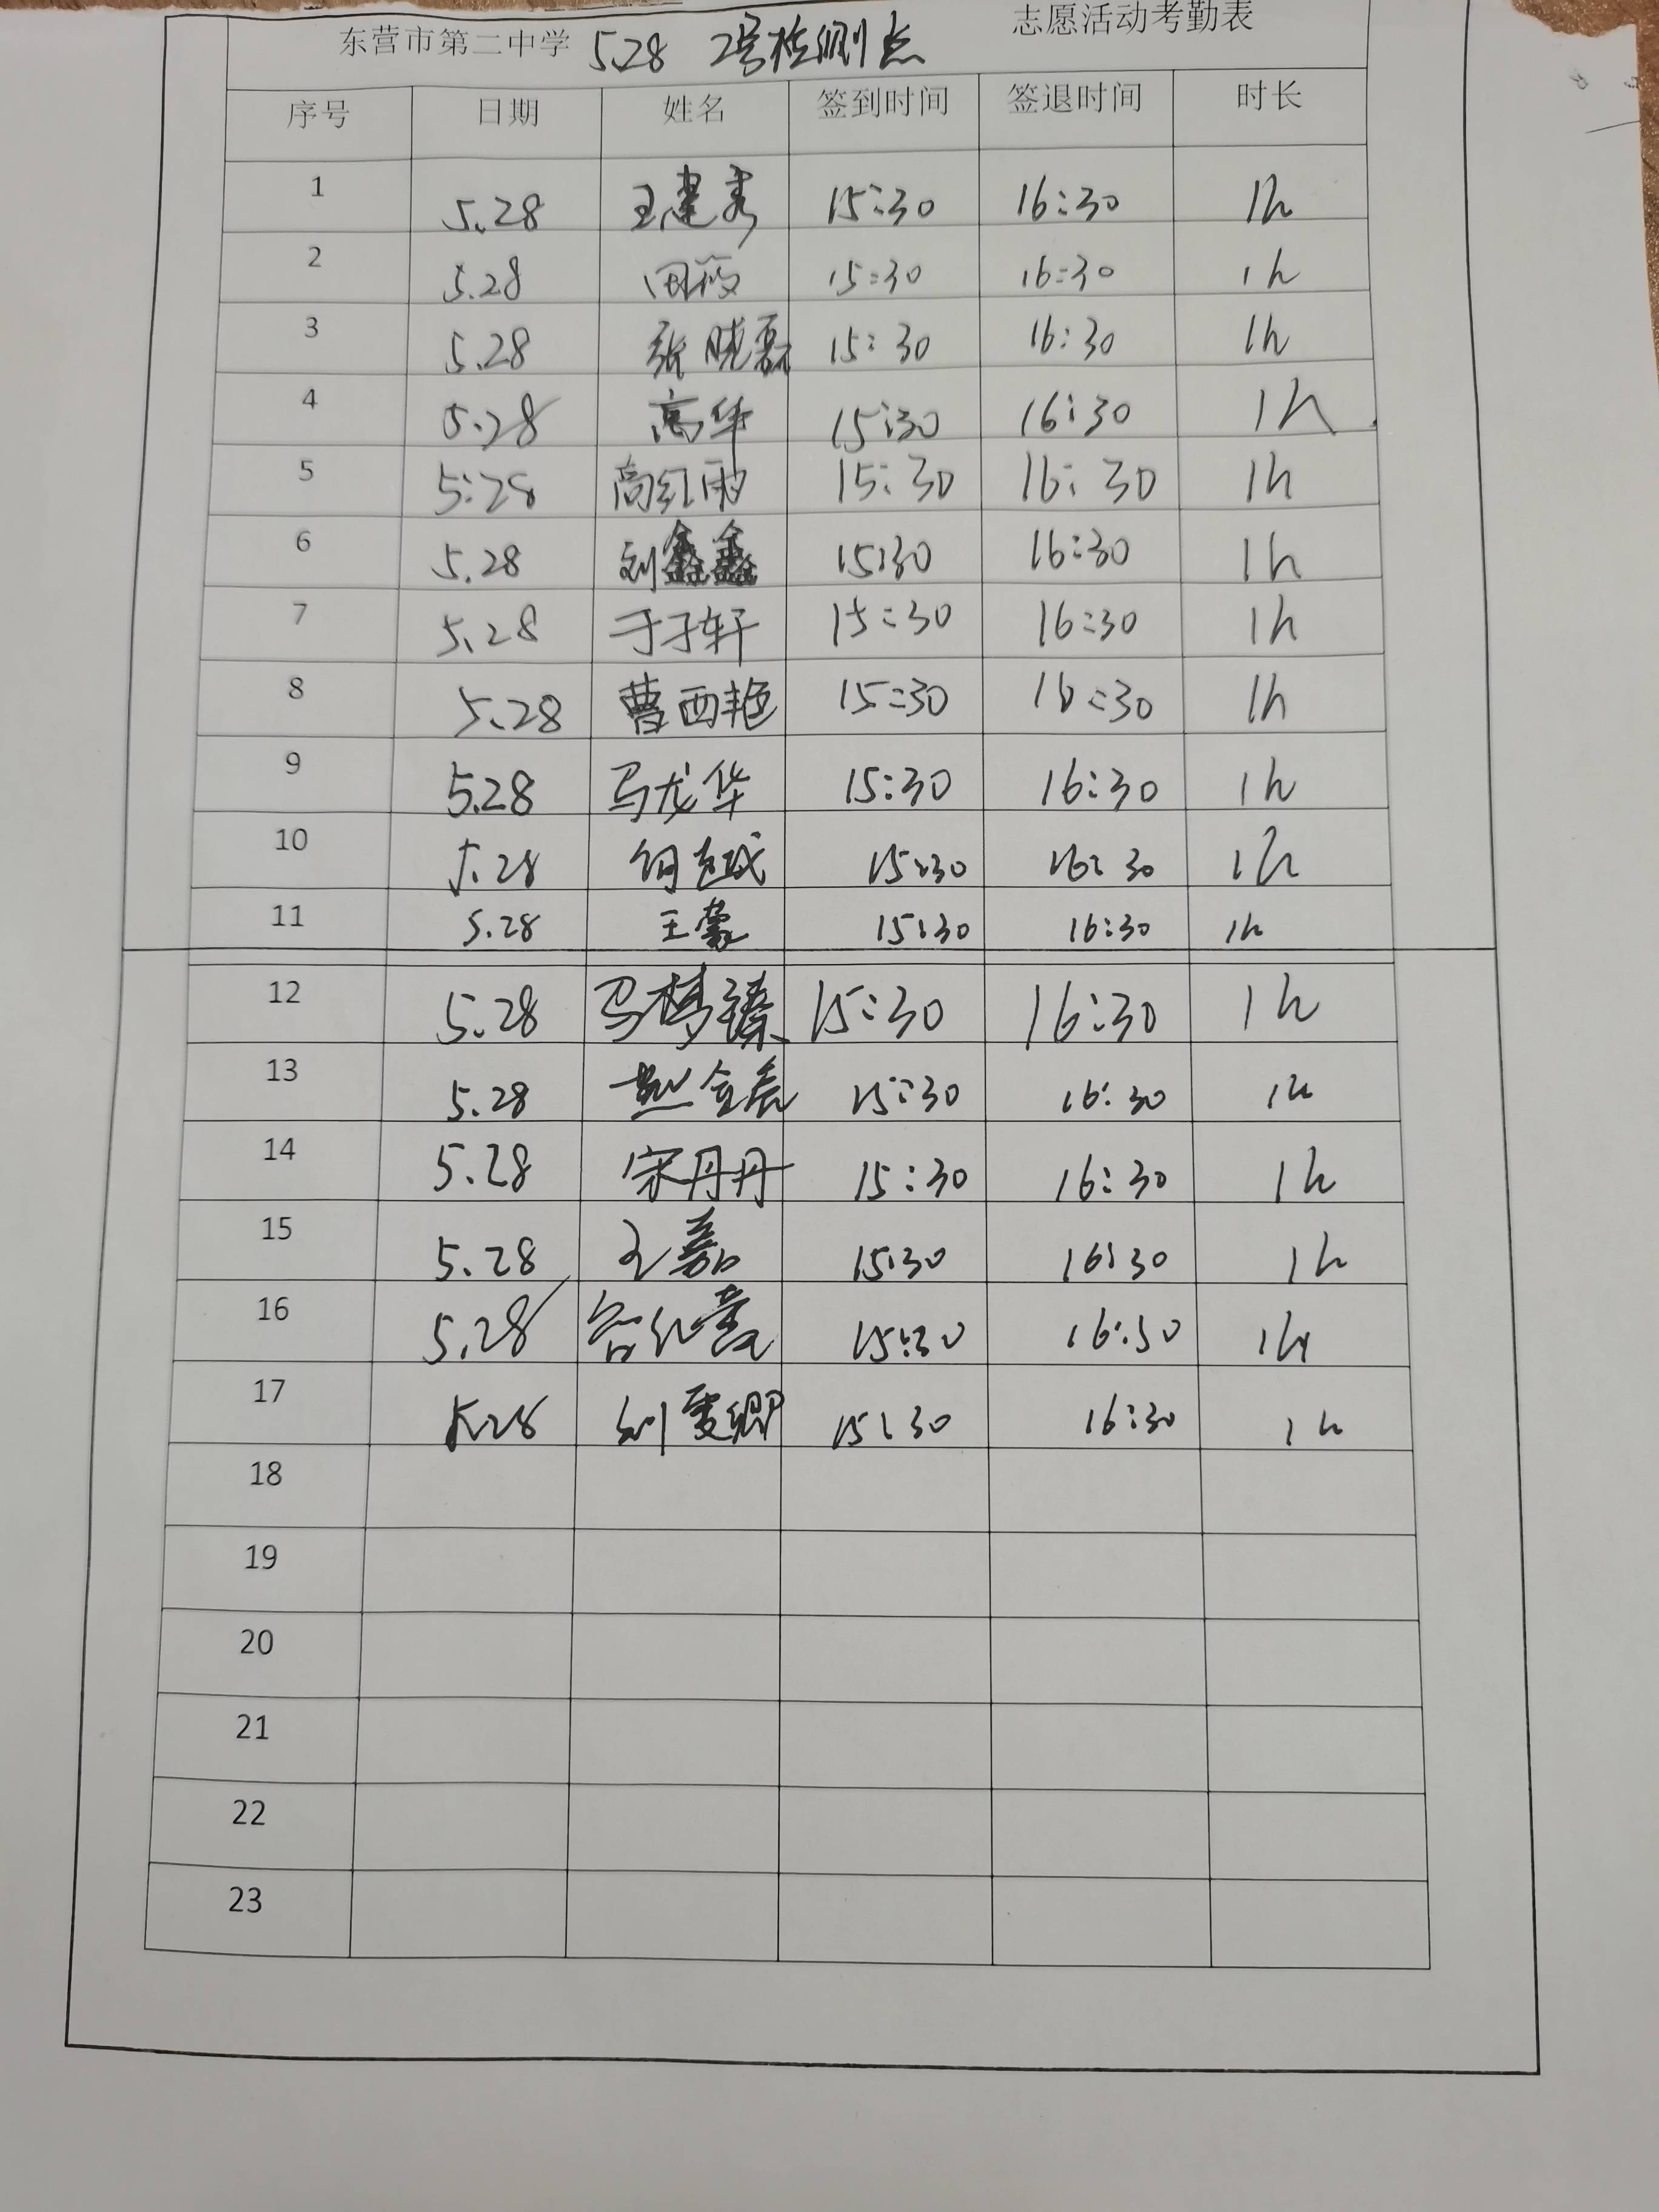 东营市第二中学 5.28 2号检测点 志愿活动考勤表
序号 日期 姓名 签到时间 签退时间 时长
1 5.28 王建秀 15:30 16:30 1h
2 5.28 15:30 16:30 1h
3 5.28 张晓磊 15:30 16:30 1h
4 5.28 高华 15:30 16:30 1h
5 5:28 高红雨 15:30 16:30 1h
6 5.28 刘鑫鑫 15:30 16:30 1h
7 5.28 于子轩 15:30 16:30 1h
8 5.28 曹西艳 15:30 16:30 1h
9 5.28 马龙华 15:30 16:30 1h
10 5.28 15:30 16:30 1h
11 5.28 王蒙 15:30 16:30 1h
12 5.28 马梦臻 15:30 16:30 1h
13 5.28 15:30 16:30 1h
14 5.28 宋丹丹 15:30 16:30 1h
15 5.28 王嘉 15:30 16:30 1h
16 5.28 15:30 16:30 1h
17 5.28 15:30 16:30 1h
18
19
20
21
22
23